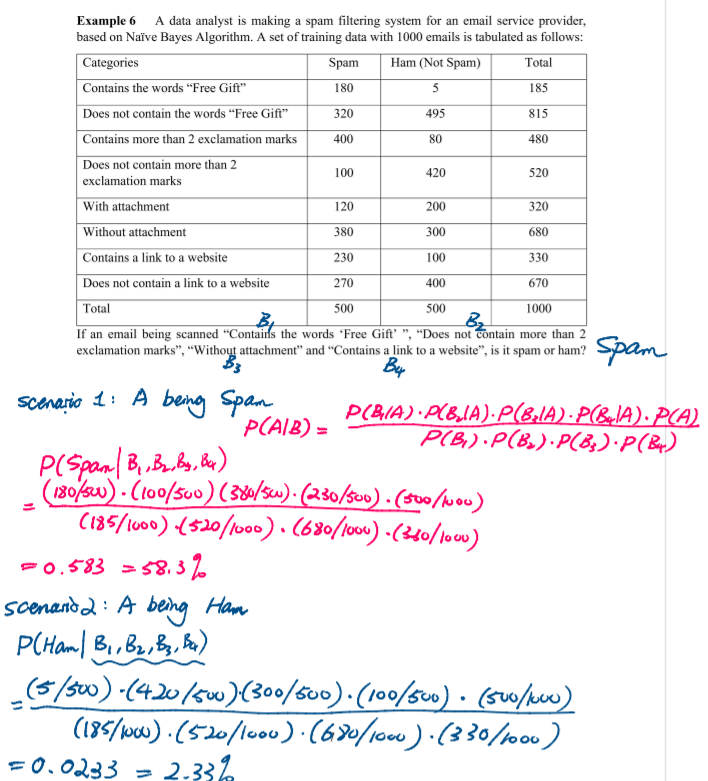 Example 6 A data analyst is making a spam filtering system for an email service provider,
based on Naïve Bayes Algorithm. A set of training data with 1000 emails is tabulated as follows:
Categories Spam Ham (Not Spam) Total
Contains the words “Free Gift” 180 5 185
Does not contain the words “Free Gift” 320 495 815
Contains more than 2 exclamation marks 400 80 480
Does not contain more than 2
exclamation marks 100 420 520
With attachment 120 200 320
Without attachment 380 300 680
Contains a link to a website 230 100 330
Does not contain a link to a website 270 400 670
Total 500 500 1000
B₁ B₂
If an email being scanned “Contains the words ‘Free Gift’ ”, “Does not contain more than 2
exclamation marks”, “Without attachment” and “Contains a link to a website”, is it spam or ham? Spam
B₃ B₄
scenario 1: A being Spam
P(A|B) = P(B₁|A)·P(B₂|A)·P(B₃|A)·P(B₄|A)·P(A)
P(B₁)·P(B₂)·P(B₃)·P(B₄)
P(Spam| B₁,B₂,B₃,B₄)
= (180/500)·(100/500)(380/500)·(230/500)·(500/1000)
(185/1000)·(520/1000)·(680/1000)·(330/1000)
=0.583 =58.3%
scenario2: A being Ham
P(Ham| B₁,B₂,B₃,B₄)
= (5/500)·(420/500)·(300/500)·(100/500)·(500/1000)
(185/1000)·(520/1000)·(680/1000)·(330/1000)
=0.0233 = 2.33%